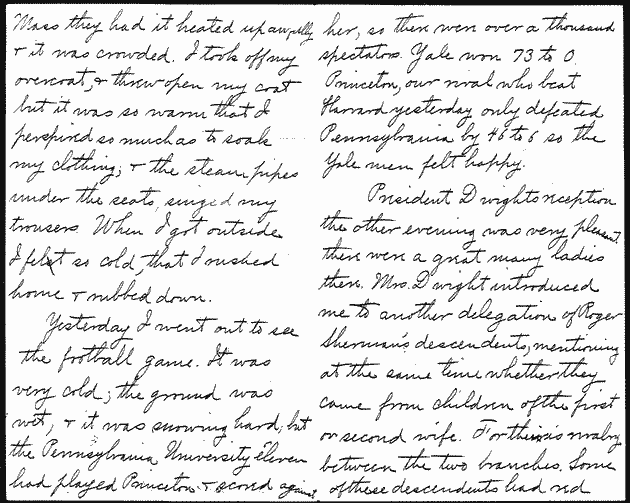 Mass they had it heated up awfully
+ it was crowded. I took off my
overcoat, + threw open my coat
but it was so warm that I
perspired so much as to soak
my clothing; + the steam pipes
under the seats, singed my
trousers. When I got outside
I felt so cold, that I rushed
home + rubbed down.
Yesterday I went out to see
the football game. It was
very cold; the ground was
wet, + it was snowing hard, but
the Pennsylvania University eleven
had played Princeton + scored against
her, so there were over a thousand
spectators. Yale won 73 to 0.
Princeton, our rival who beat
Harvard yesterday only defeated
Pennsylvania by 46 to 6 so the
Yale men felt happy.
President Dwights reception
the other evening was very pleasant.
there were a great many ladies
there. Mrs. Dwight introduced
me to another delegation of Roger
Sherman's descendents, mentioning
at the same time whether they
came from children of the first
or second wife. For there is rivalry
between the two branches. Some
of these descendents had red